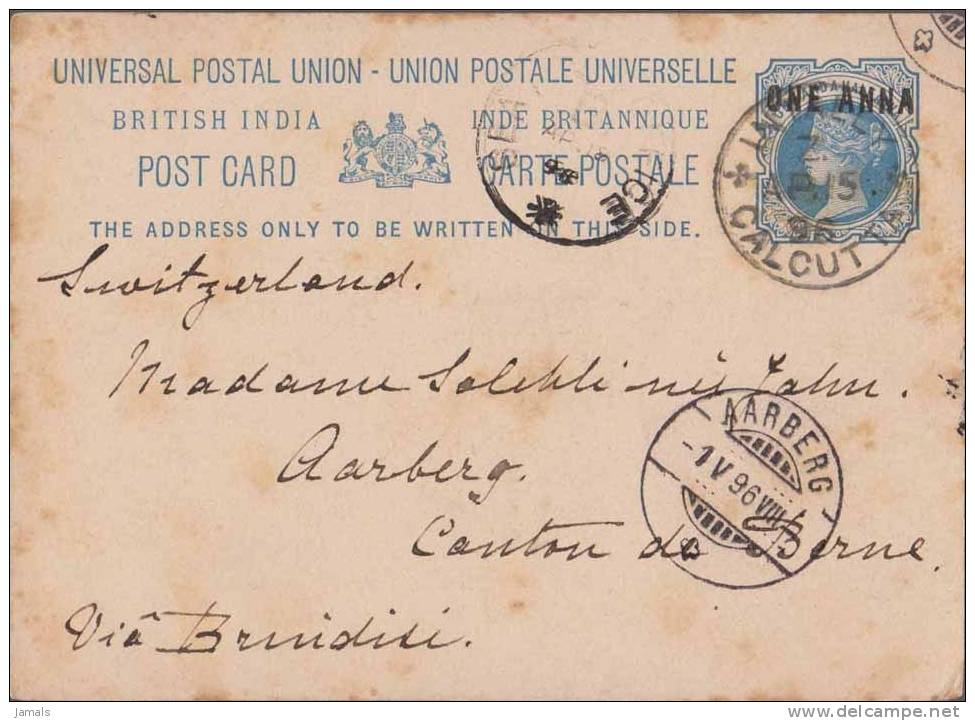 UNIVERSAL POSTAL UNION - UNION POSTALE UNIVERSELLE
BRITISH INDIA INDE BRITANNIQUE
POST CARD CARTE POSTALE
THE ADDRESS ONLY TO BE WRITTEN ON THIS SIDE.
ONE ANNA
AP. 15
96
CALCUTTA
SEA
AP. 15
96
Switzerland.
Madame née Jahn.
Aarberg.
Canton de Berne.
Viâ Brindisi.
AARBERG
-1 V 96 VIII
Jamals
www.delcampe.net